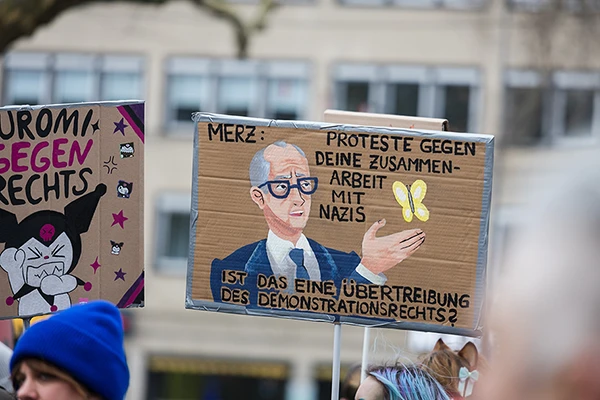 KUROMI
GEGEN
RECHTS
MERZ:
PROTESTE GEGEN
DEINE ZUSAMMEN-
ARBEIT
MIT
NAZIS
IST DAS EINE ÜBERTREIBUNG
DES DEMONSTRATIONSRECHTS?